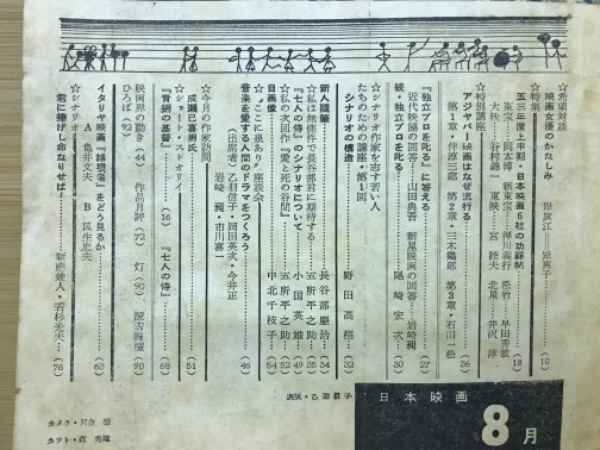 ☆希望対談
映画女優のかなしみ……(10)
☆特集
五三年度上半期・日本映画6社の功罪帖……(18)
東宝 岡本博 新東宝 押川義行 松竹 早田秀敏
大映 谷村錦一 東映 宮 敏夫 北星 井沢 淳
☆特別講座
アジャパー映画はなぜ流行る……(36)
第1章・伴淳三郎 第2章・三木鶏郎 第3章・石田一松
『独立プロを叱る』に答える……(27)
近代映協の回答……山田典吾 新星映画の回答……岩崎昶
続・独立プロを叱る……尾崎宏次…(30)
☆シナリオ作家を志す若い人
たちのための講座・第1回
シナリオの構造……野田高梧…(32)
新人随筆……長谷部慶治…(34)
☆私は無条件で長谷部君に期待する……五所平之助…(35)
『七人の侍』のシナリオについて……小国英雄…(49)
☆私の次回作『愛と死の谷間』……五所平之助…(52)
自画像……中北千枝子…(54)
☆“ここに泉あり”座談会
音楽を愛する人間のドラマをつくろう……(46)
(出席者)乙羽信子・岡田英次・今井正
岩崎 昶・市川喜一
☆今月の作家訪問
成瀬巳喜男氏……(51)
☆ショート・ストオリイ
『青銅の基督』……(16) 『七人の侍』……(68)
映画界の動き(44) 作品月評(72) 灯(90)、読者論壇(90)
ひろば(92)
イタリヤ映画『越境者』をどう見るか……(63)
A 亀井文夫 B 瓜生忠夫
☆シナリオ
君に捧げし命なりせば……新藤兼人・若杉光夫…(76)
表紙・乙羽信子
日本映画
8月
カメラ・河合
カット・森